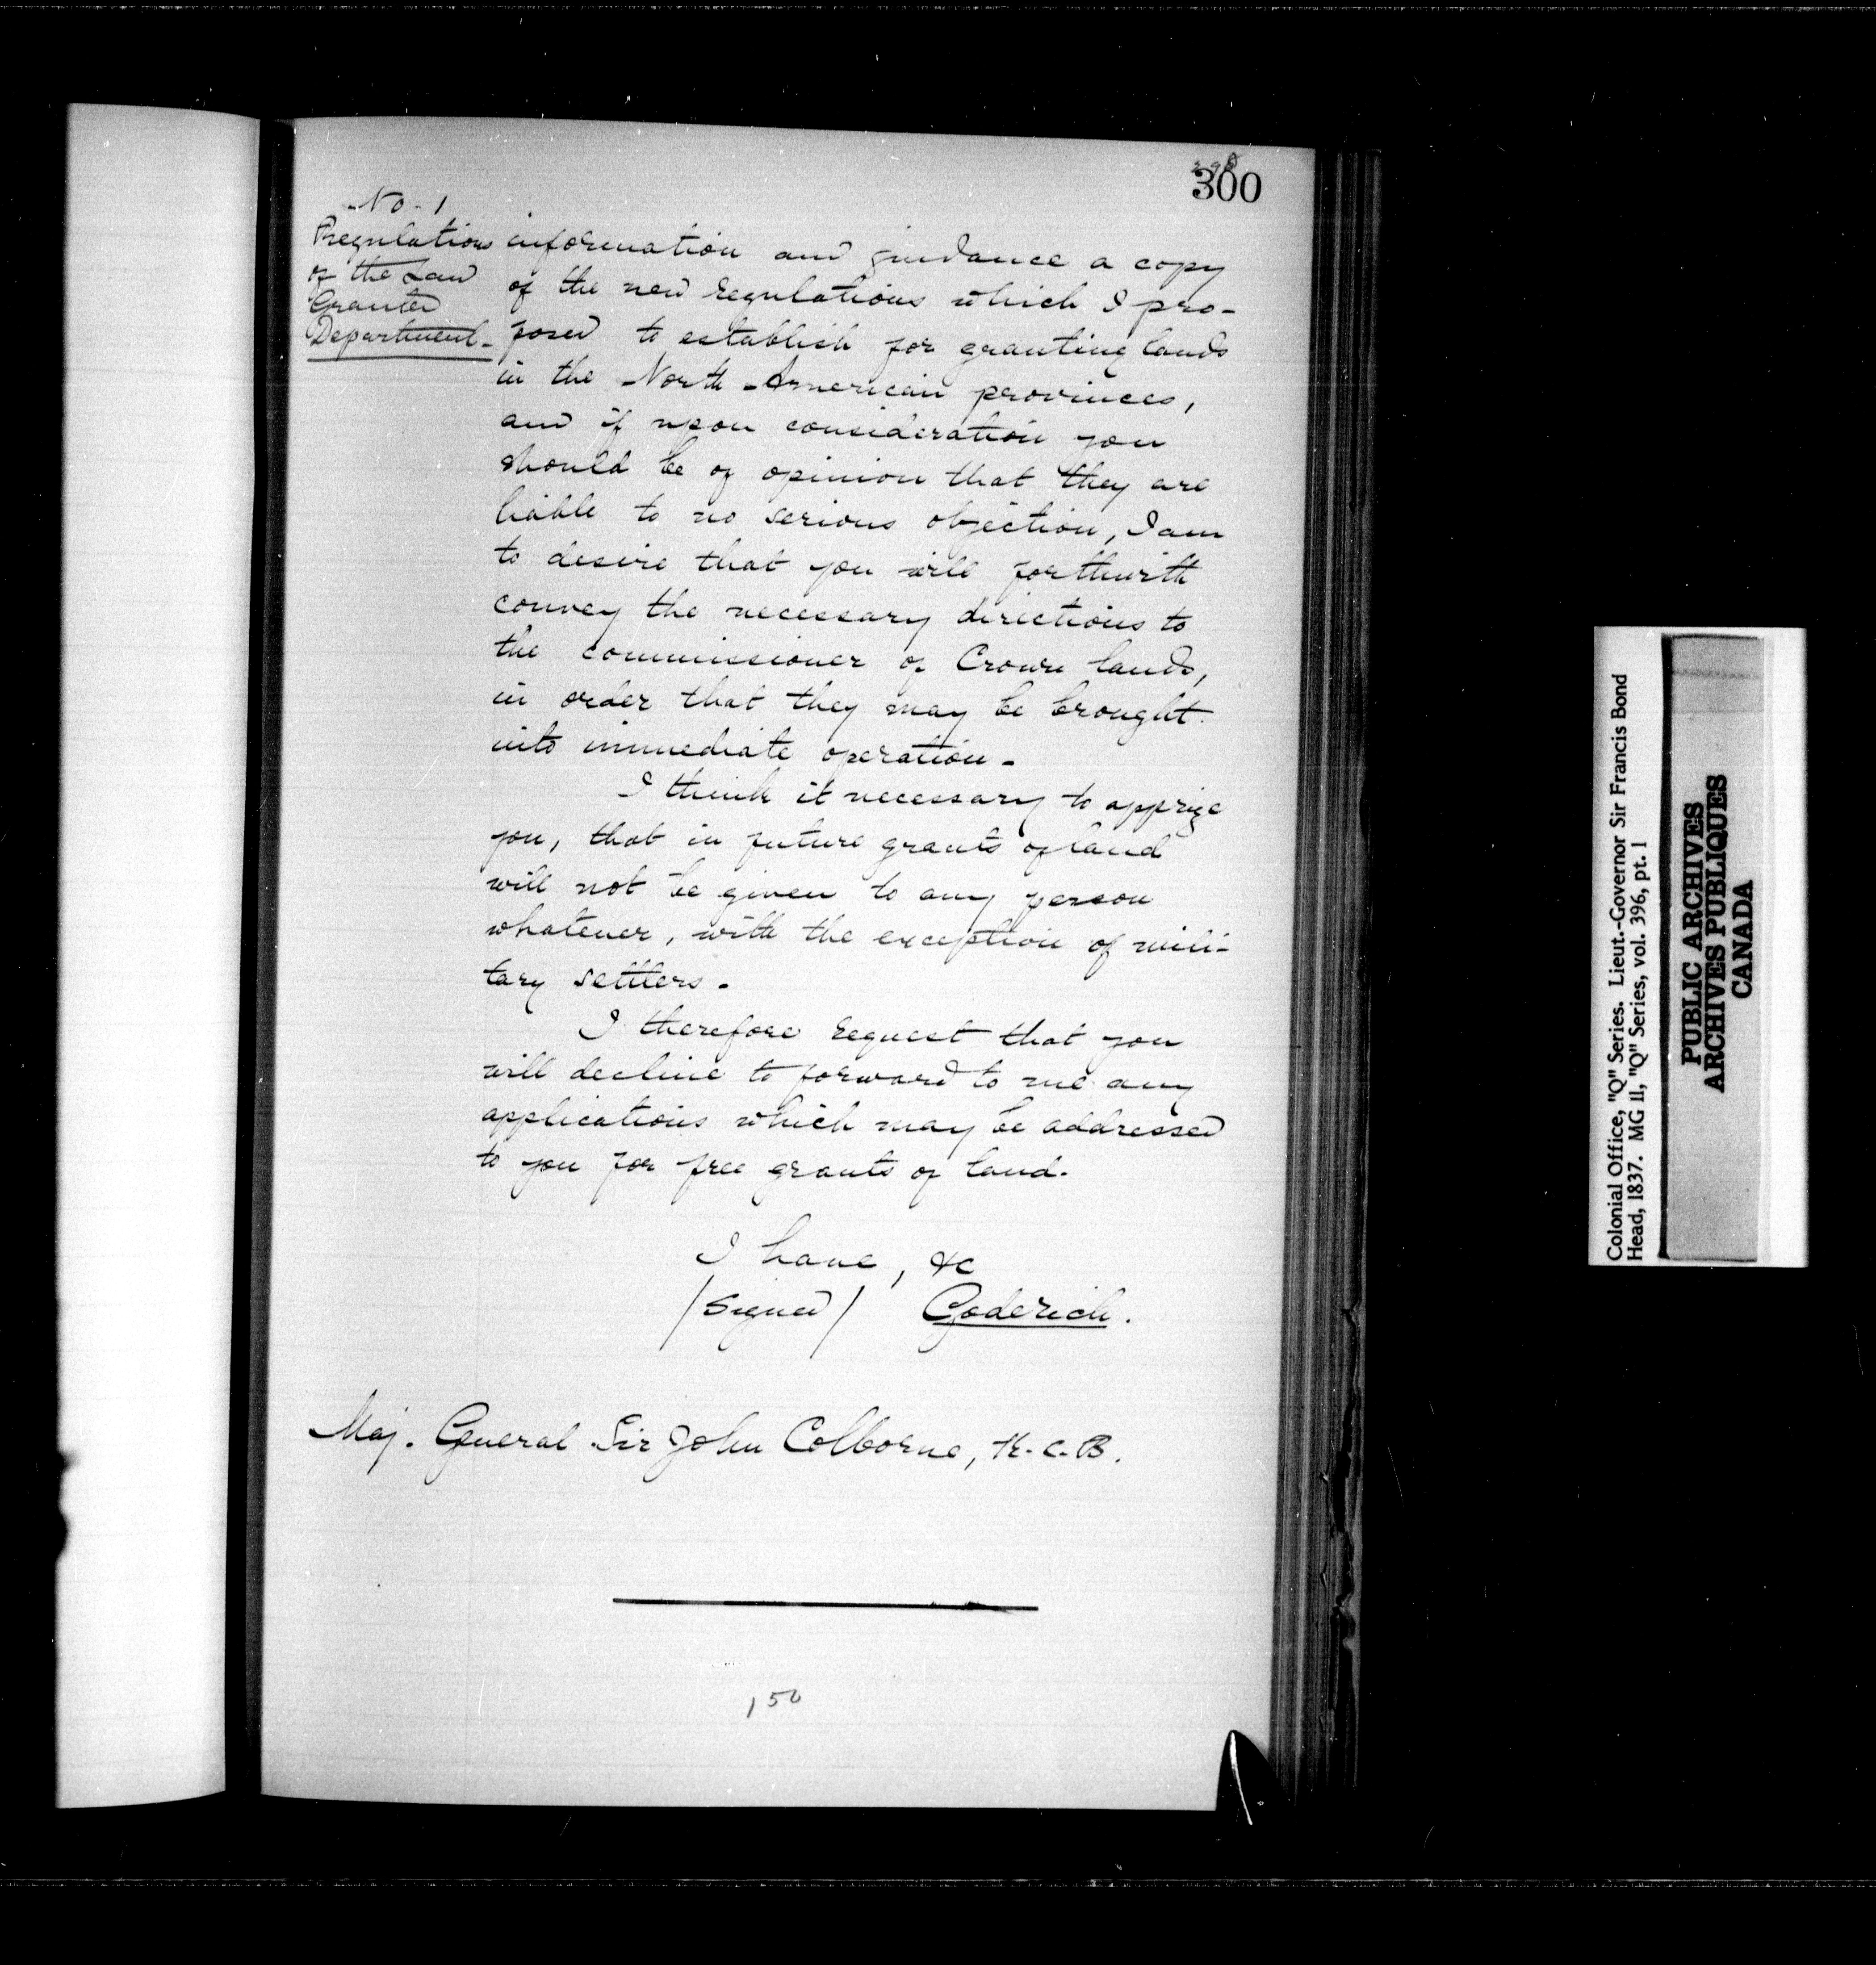 300
No. 1
Regulations
of the Law
Granted
Department.
information and guidance a copy
of the new regulations which I pro-
posed to establish for granting lands
in the North-American provinces,
and if upon consideration you
should be of opinion that they are
liable to no serious objection, I am
to desire that you will forthwith
convey the necessary directions to
the commissioner of Crown lands,
in order that they may be brought
into immediate operation-
I think it necessary to apprize
you, that in future grants of land
will not be given to any person
whatever, with the exception of mili-
tary settlers-
I therefore request that you
will decline to forward to me any
applications which may be addressed
to you for free grants of land.
I have, &c
/signed/ Goderich.
Maj. General Sir John Colborne, K.C.B.
150
Colonial Office, "Q" Series. Lieut.-Governor Sir Francis Bond
Head, 1837. MG 11, "Q" Series, vol. 396, pt. 1
PUBLIC ARCHIVES
ARCHIVES PUBLIQUES
CANADA